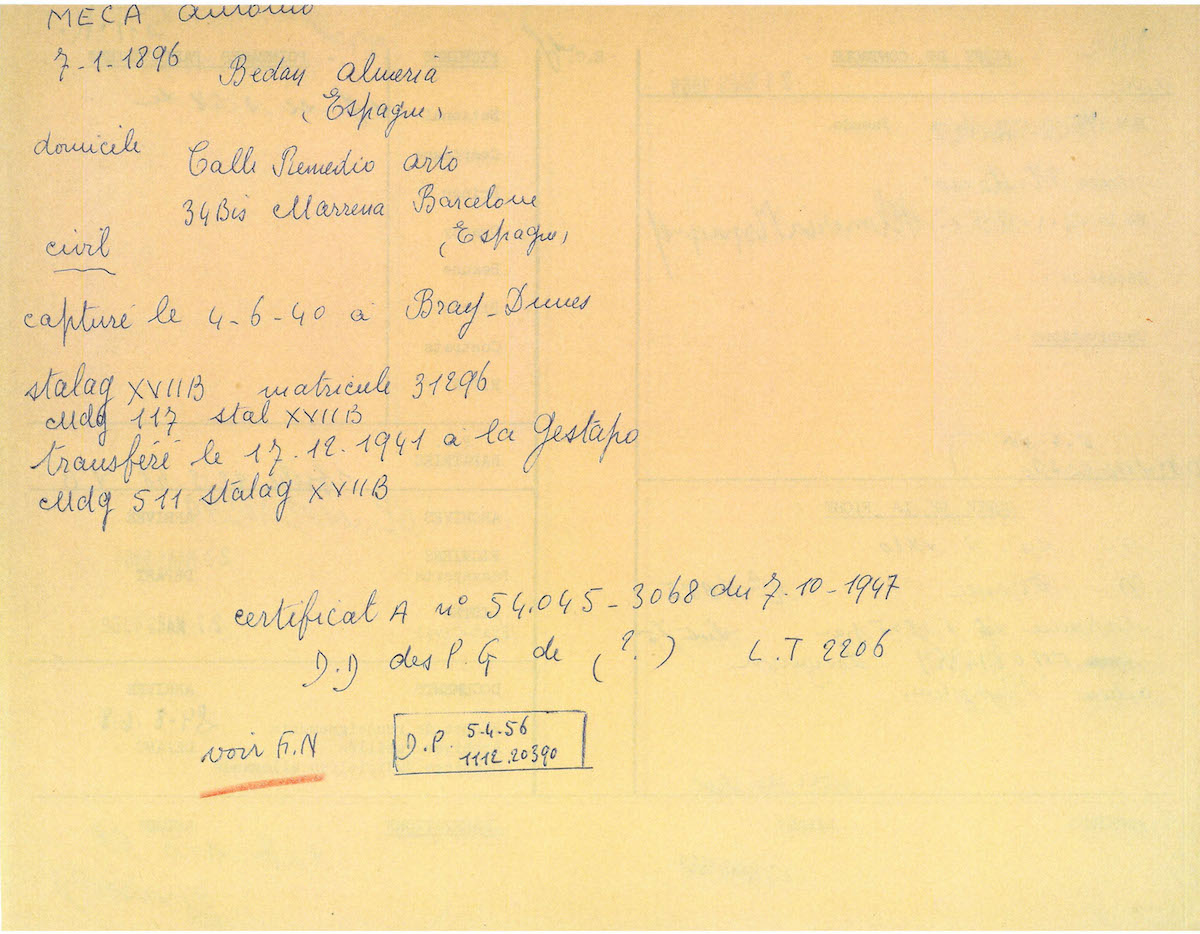 MECA Antonio
7-1-1896 Bedar Almeria
(Espagne)
domicile Calle Remedio arto
34Bis Marrena Barcelone
(Espagne)
civil
capturé le 4-6-40 à Bray-Dunes
stalag XVIIB matricule 31296
Mdg 117 stal XVIIB
transféré le 17.12.1941 à la Gestapo
Mdg 511 stalag XVIIB
certificat A n° 54.045-3068 du 7.10-1947
D.D des P.G de (?) L.T 2206
voir F.N
D.P. 5-4-56
1112.20390